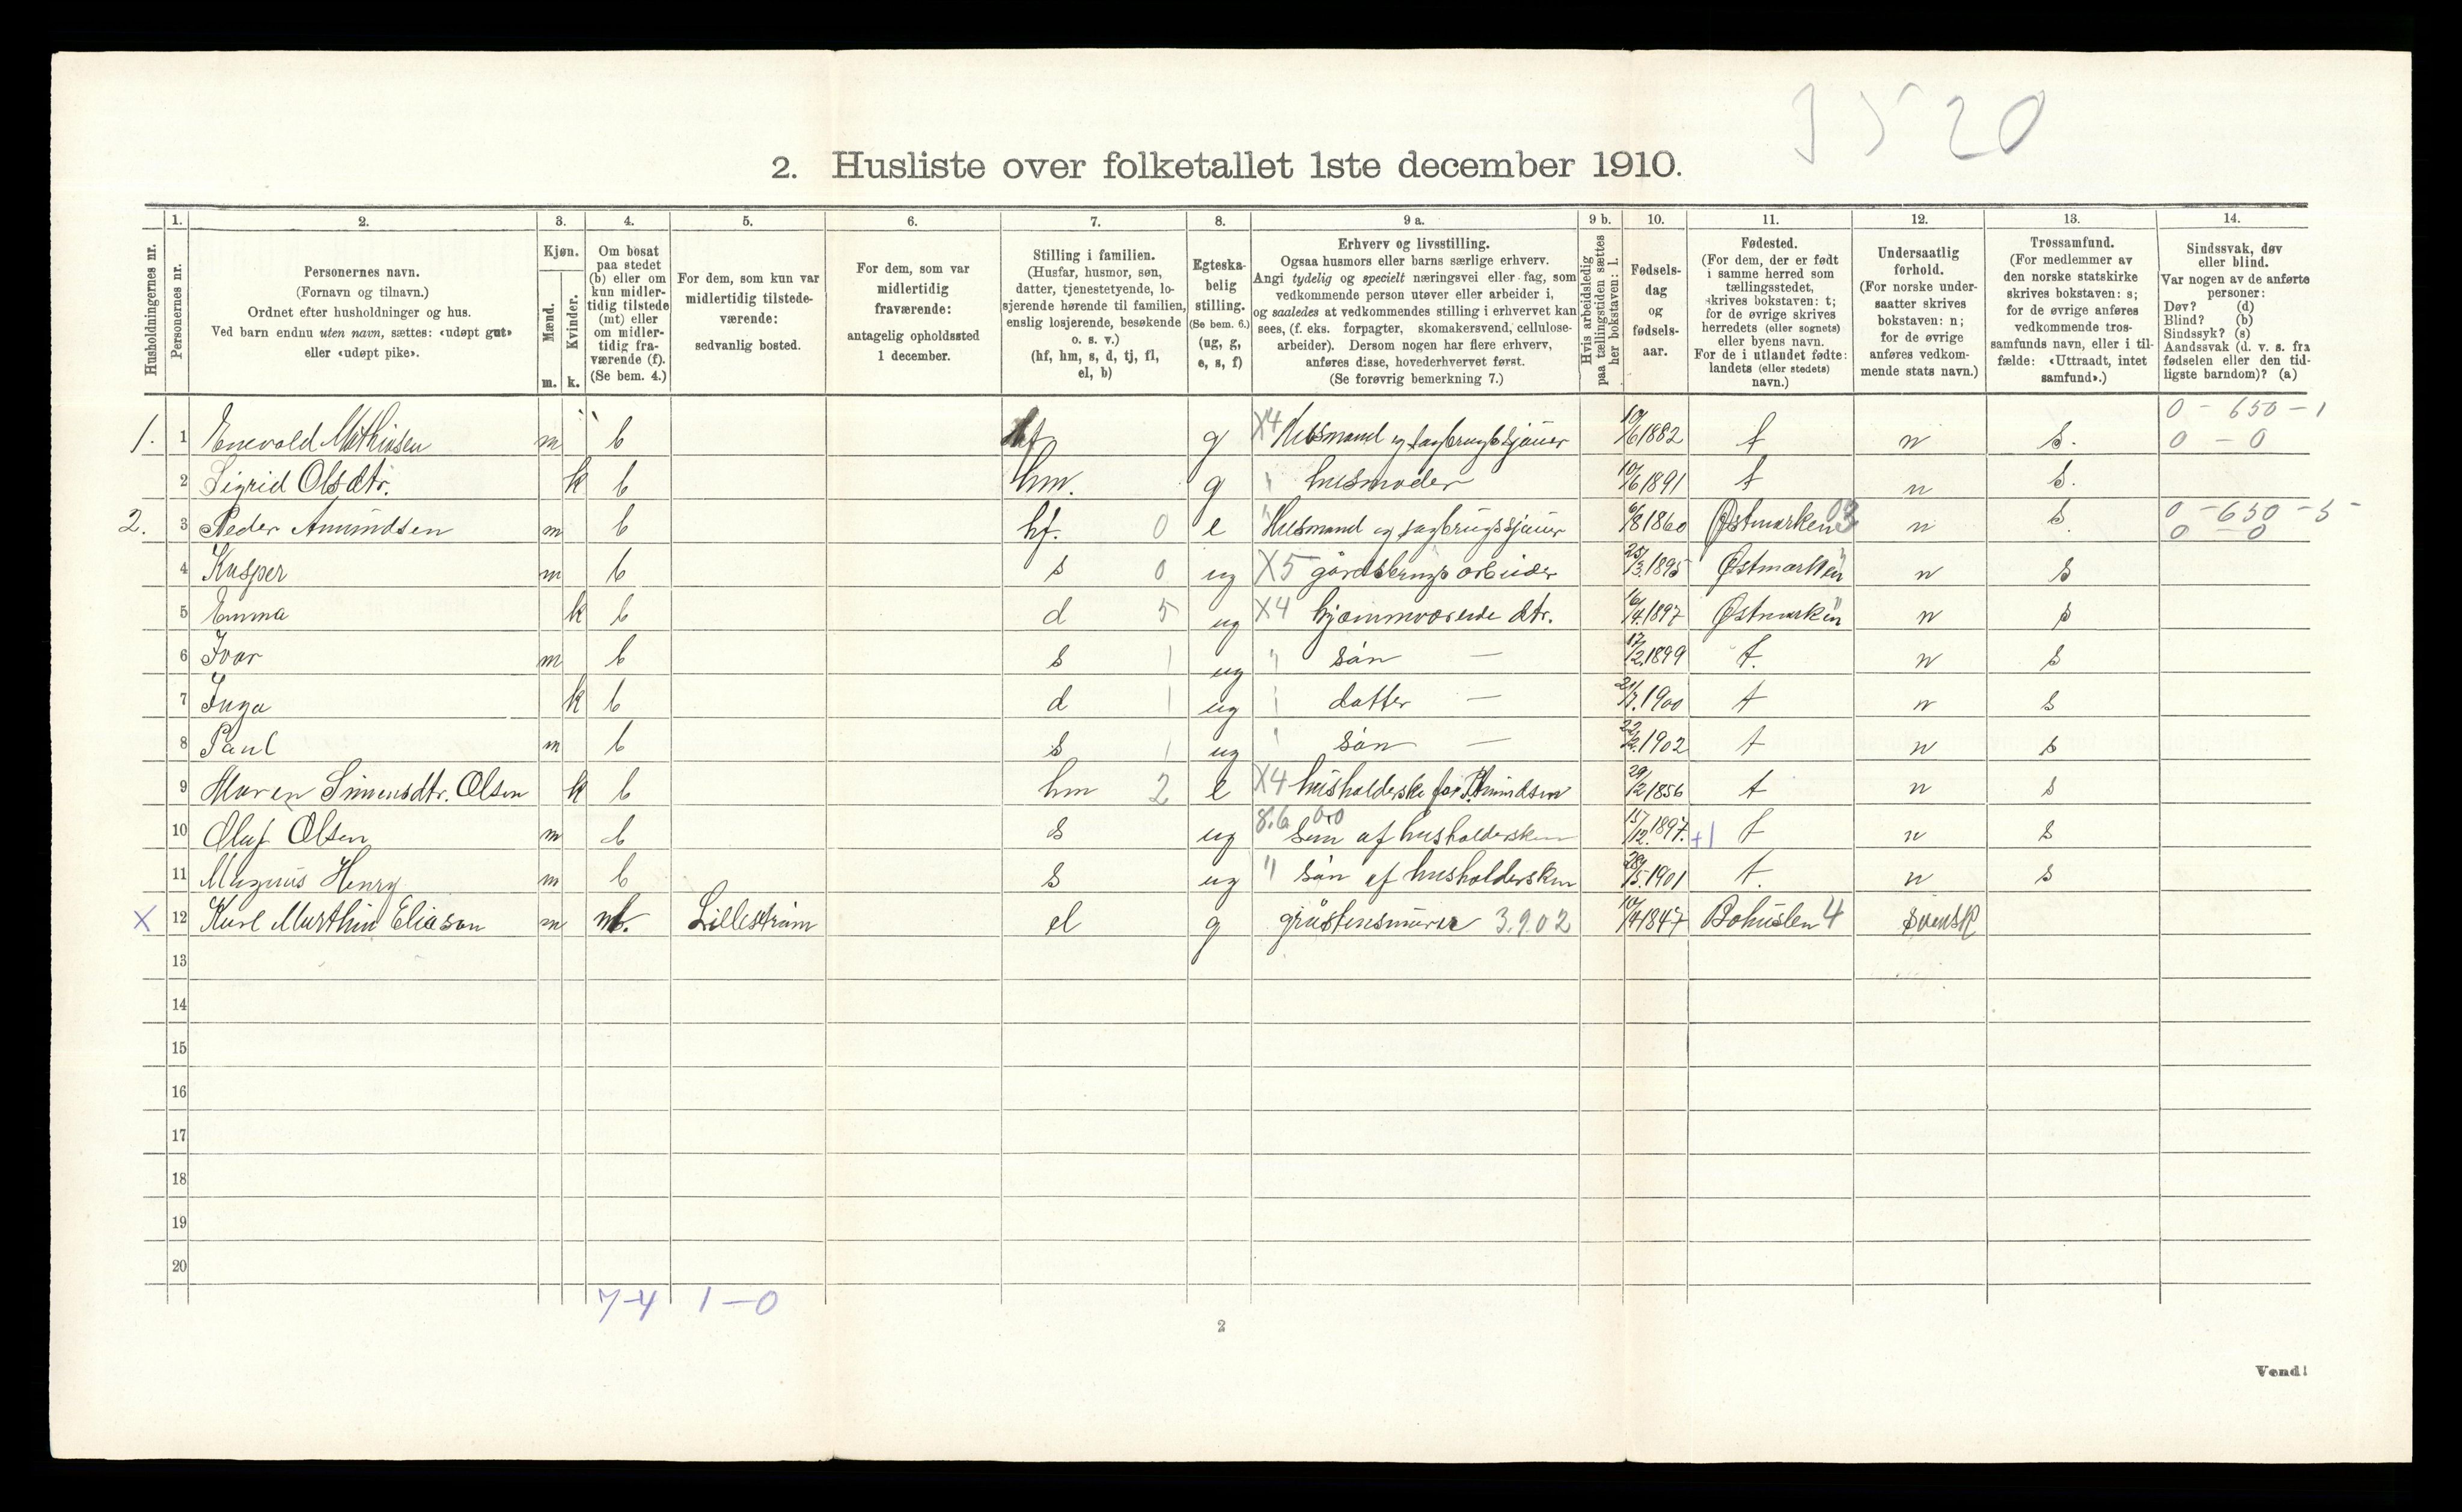 3520
2. Husliste over folketallet 1ste december 1910.
1. 2. 3. 4. 5. 6. 7. 8. 9 a. 9 b. 10. 11. 12. 13. 14.
Husholdningernes nr.
Personernes nr.
Personernes navn.
(Fornavn og tilnavn.)
Ordnet efter husholdninger og hus.
Ved barn endnu uten navn, sættes: «udøpt gut»
eller «udøpt pike».
Kjøn.
Mænd.
Kvinder.
m. k.
Om bosat
paa stedet
(b) eller om
kun midler-
tidig tilstede
(mt) eller
om midler-
tidig fra-
værende (f).
(Se bem. 4.)
For dem, som kun var
midlertidig tilstede-
værende:
sedvanlig bosted.
For dem, som var
midlertidig
fraværende:
antagelig opholdssted
1 december.
Stilling i familien.
(Husfar, husmor, søn,
datter, tjenestetyende, lo-
sjerende hørende til familien,
enslig losjerende, besøkende
o. s. v.)
(hf, hm, s, d, tj, fl,
el, b)
Egteska-
belig
stilling.
(Se bem. 6.)
(ug, g,
e, s, f)
Erhverv og livsstilling.
Ogsaa husmors eller barns særlige erhverv.
Angi tydelig og specielt næringsvei eller fag, som
vedkommende person utøver eller arbeider i,
og saaledes at vedkommendes stilling i erhvervet kan
sees, (f. eks. forpagter, skomakersvend, cellulose-
arbeider). Dersom nogen har flere erhverv,
anføres disse, hovederhvervet først.
(Se forøvrig bemerkning 7.)
Hvis arbeidsledig
paa tællingstiden sættes
her bokstaven: l.
Fødsels-
dag
og
fødsels-
aar.
Fødested.
(For dem, der er født
i samme herred som
tællingsstedet,
skrives bokstaven: t;
for de øvrige skrives
herredets (eller sognets)
eller byens navn.
For de i utlandet fødte:
landets (eller stedets)
navn.)
Undersaatlig
forhold.
(For norske under-
saatter skrives
bokstaven: n;
for de øvrige
anføres vedkom-
mende stats navn.)
Trossamfund.
(For medlemmer av
den norske statskirke
skrives bokstaven: s;
for de øvrige anføres
vedkommende tros-
samfunds navn, eller i til-
fælde: «Uttraadt, intet
samfund».)
Sindssvak, døv
eller blind.
Var nogen av de anførte
personer:
Døv? (d)
Blind? (b)
Sindssyk? (s)
Aandssvak (d. v. s. fra
fødselen eller den tid-
ligste barndom)? (a)
0 - 650 - 1
1. 1 Enevold Mathisen m b hf g X4 Husmand og sagbrugssjauer 10/6 1882 t n s. 0 - 0
2 Sigrid Olsdtr. k b hm. g " husmoder 10/6 1891 t n s.
2. 3 Peder Amundsen m b hf. 0 e " Husmand og sagbrugssjauer 6/8 1860 Østmarken 03 n s. 0 - 650 - 5 -
0 - 0
4 Kasper m b s 0 ug X5 gårdsbrugsarbeider 25/3. 1895 Østmarken " n s
5 Emma k b d 5 ug X4 hjemmværende dtr. 16/4. 1897 Østmarken " n s
6 Ivar m b s 1 ug " sön — 17/2. 1899 t. n s
7 Inga k b d 1 ug " datter — 21/7. 1900 t n s
8 Paul m b s 1 ug " sön — 22/2. 1902 t n s
9 Maren Simensdtr. Olsen k b hm 2 e X4 husholderske for P. Amundsen 29/2 1856 t n s
10 Oluf Olsen m b s ug 8.6 0-0 Sön af husholdersken 15/12. 1897. +1 t n s
11 Magnus Henry m b s ug " sön af husholdersken 28/5. 1901 t. n s
X 12 Karl Marthin Eliason m mt. Lilleström el g gråstensmurer 3.9.02 10/4 1847 Bohuslen 4 Svensk
13
14
15
16
17
18
19
20
7-4 1-0
2
Vend!